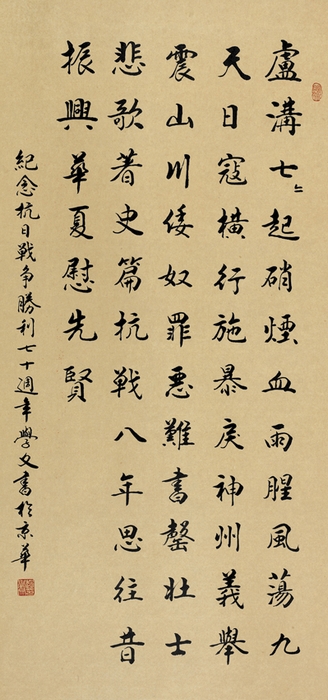 盧溝七〻起硝煙血雨腥風蕩九
天日寇橫行施暴戾神州義舉
震山川倭奴罪惡難書罄壯士
悲歌著史篇抗戦八年思往昔
振興華夏慰先賢
紀念抗日戦争勝利七十週年學文書於京華